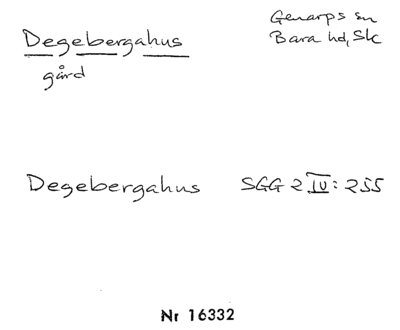 Degebergahus
gård
Genarps sn
Bara hd, Sk
Degebergahus SGG 2 IV: 255
Nr 16332